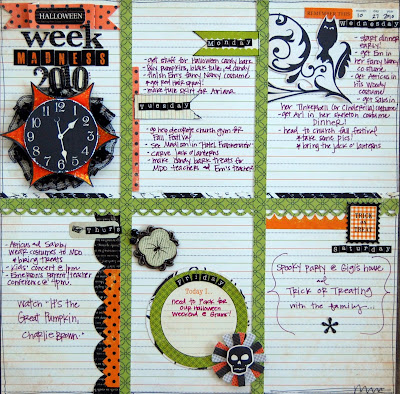 HALLOWEEN
week
MADNESS
2010
Monday
- get stuff for Halloween candy bark
- buy pumpkins, black tulle, and candy
- finish Em's fancy Nancy costume
- get red hair spray!
- make tulle skirt for Ariana
Tuesday
- go help decorate church gym for
Fall Festival
- see Madison in "Hotel Frankenweiner"
- carve jack o'lanterns
- make candy bark treats for
MDO teachers and Em's teacher
REMEMBER THIS
10 27 2010
Wednesday
- start dinner
early!
- get Em in
her Fancy Nancy
costume
- get Atticus in
his Woody
costume!
- get Sabs in
her Tinkerbell (or Cinderella) costume
- get Ari in her skeleton costume
DINNER!
- head to church fall festival
* take some pics!
* bring the jack o'lanterns
Thurs
- Atticus and Sabby
wear costumes to MDO
* bring treats
- Kids' concert @ 1pm
- Emerson's parent/teacher
conference @ 4pm.
Watch "It's the
Great Pumpkin,
Charlie Brown."
Friday
Today I...
need to pack for
our Halloween
weekend @ Grams!
TRICK
OR
TREAT
Saturday
Spooky Party @ Gigi's house
and
Trick or Treating
with the family...